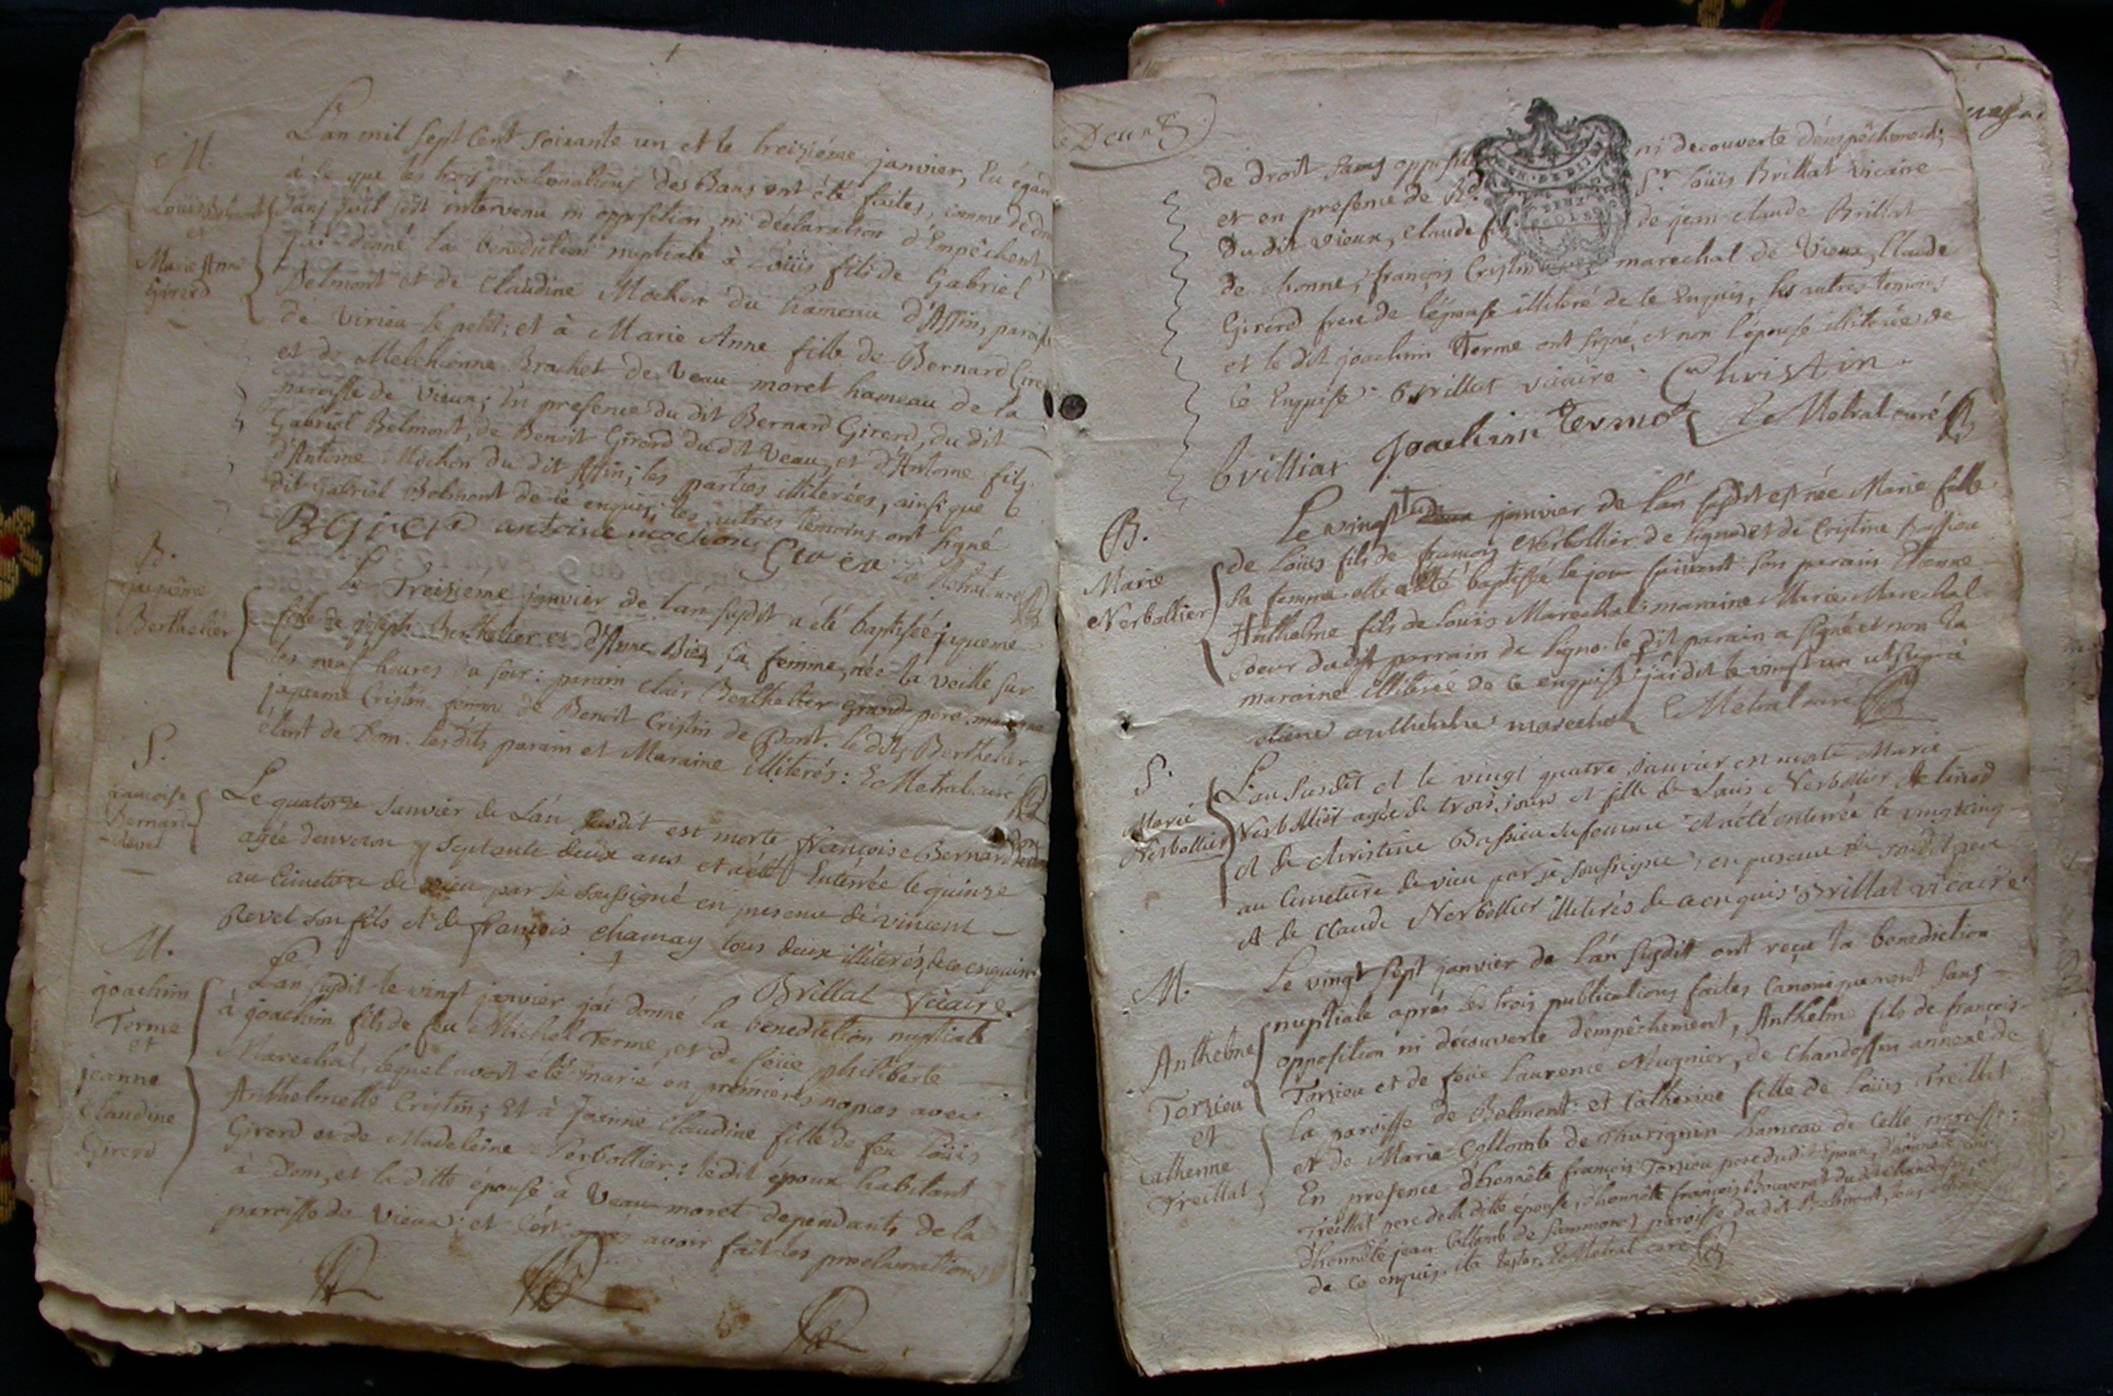 M.
Louis Belmont
et
Marie Anne
Girerd
L'an mil sept cent soixante un et le treiziéme janvier, Eu égard
à ce que les trois proclamations des Bans ont été faites, comme de droit
sans qu'il soit intervenu ni opposition, ni déclaration d'Empêchent,
j'ai donné la bénédiction nuptiale à Loüis fils de Gabriel
Belmont et de Claudine Mochon du hameau d'Assin, paroisse
de Virieu-le petit; et à Marie Anne fille de Bernard Girerd
et de Melchionne Brachet de Veau-moret hameau de la
paroisse de Vieux; En presence du dit Bernard Girerd, du dit
Gabriel Belmont, de Benoit Girerd du dit Veau, et d'Antoine fils
d'Antoine Mochon du dit Assin; les parties illiterées, ainsi que le
dit Gabriel Belmont de ce enquis; les autres temoins ont signé
B Girerd antoine mochon Girerd
B.
jaquême
Berthelier
Le Treiziéme janvier de l'an susdit a été baptisée jaqueme
fille de joseph Berthelier et d'Anne Biez sa femme, née la veille sur
les neuf heures du soir: parain Clair Berthelier grand pere; maraine
jaqueme Cristin femme de Benoit Cristin de Pont. le dits Berthelier
étant de Dom. les dits parain et Maraine illiterés: E Metral curé
S.
francoise
Bernard
Revel
Le quatorze Janvier de L'an susdit est morte francoise Bernard
agée denviron septante deux ans et a été Enterrée le quinze
au Cimetiere de vieu par je soussigné en presence de vincent
Revel son fils et de françois chamay tous deux illiterés de ce enquis
Brillat Vicaire.
M.
joachim
Terme
et
jeanne
Claudine
Girerd
L'an susdit le vingt janvier j'ai donné la benediction nuptiale
à joachim fils de feu Michel Terme, et de feüe philiberte
Marechal, lequel avoit été marié en premieres nopces avec
Anthelmette Cristin; Et à Jeanne Claudine fille de feu Loüis
Girerd et de Madeleine Perbollier: le dit époux habitant
à Dom, et la ditte épouse à Veau-moret dependants de la
paroisse de Vieux; et c'est aprés avoir fait les proclamations
Deux
de droit sans opposition ni decouverte d'empêchement;
et en presence de Rd Sr Loüis Brillat Vicaire
du dit Vieux, Claude fils de jean-claude Brillat
de chonne, françois Cristin marechal de Vieux, Claude
Girerd frere de l'épouse illiteré de ce Enquis, les autres temoins
et le dit joachim Terme ont signé, et non l'epouse illiterée de
ce Enquise. Brillat vicaire. Christin.
brilliat joachim termoz E Metral curé
B.
Marie
Nerbollier
Le vingt janvier de l'an susdit est née Marie fille
de Loüis fils de françois Nerbollier de Lignod et de Cristine Bassieu
sa femme, elle a été baptisée le jour suivant: son parain Etienne
Anthelme fils de Louis Marechal: maraine Marie Marechal
soeur du dit parrain de Ligno. le dit parain a signé et non la
maraine illiterée de ce enquise. j'ai dit le vingt un
marechal E Metral curé
S.
Marie
Nerbollier
L'an susdit et le vingt quatre Janvier est morte Marie
Nerbollier agée de trois jours et fille de Louis Nerbollier de linod
et de christine Bassieu sa femme et a été enterrée le vingt cinq
au Cimetiere de vieu par je soussigné, en presence du susdit pere
et de Claude Nerbollier illiterés de ce enquis. Brillat vicaire.
M.
Anthelme
Torzieu
et
Catherine
Treillat
Le vingt sept janvier de l'an susdit ont reçu la benediction
nuptiale aprés les trois publications faites canoniquement sans
opposition ni découverte d'empêchement, Anthelme fils de françois
Torzieu et de feüe Laurence Mugnier, de Chandossin annexe de
la paroisse de Belmont: et Catherine fille de Loüis Treillat
et de Marie Collomb de Thurignin hameau de Celle paroisse:
En presence d'honnête françois Torzieu pere du dit époux,
Treillat pere de la ditte épouse, d'honnête françois
D'honnête jean Collomb de Sammonet paroisse du dit Belmont,
de ce enquis. E Metral curé